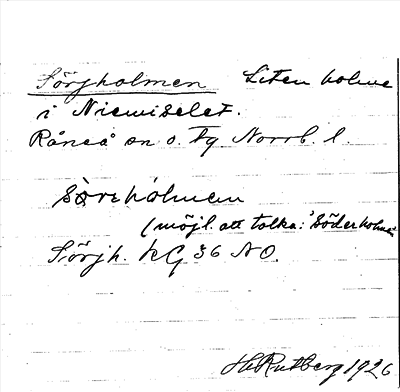 Sörjholmen Liten holme
i Niemiselet.
Råneå sn o. tg Norrb. l.
sörehòlmen
(möjl. att tolka: 'Söderholmen'
Sörjh. kG 36 NO.
H Rutberg 1926